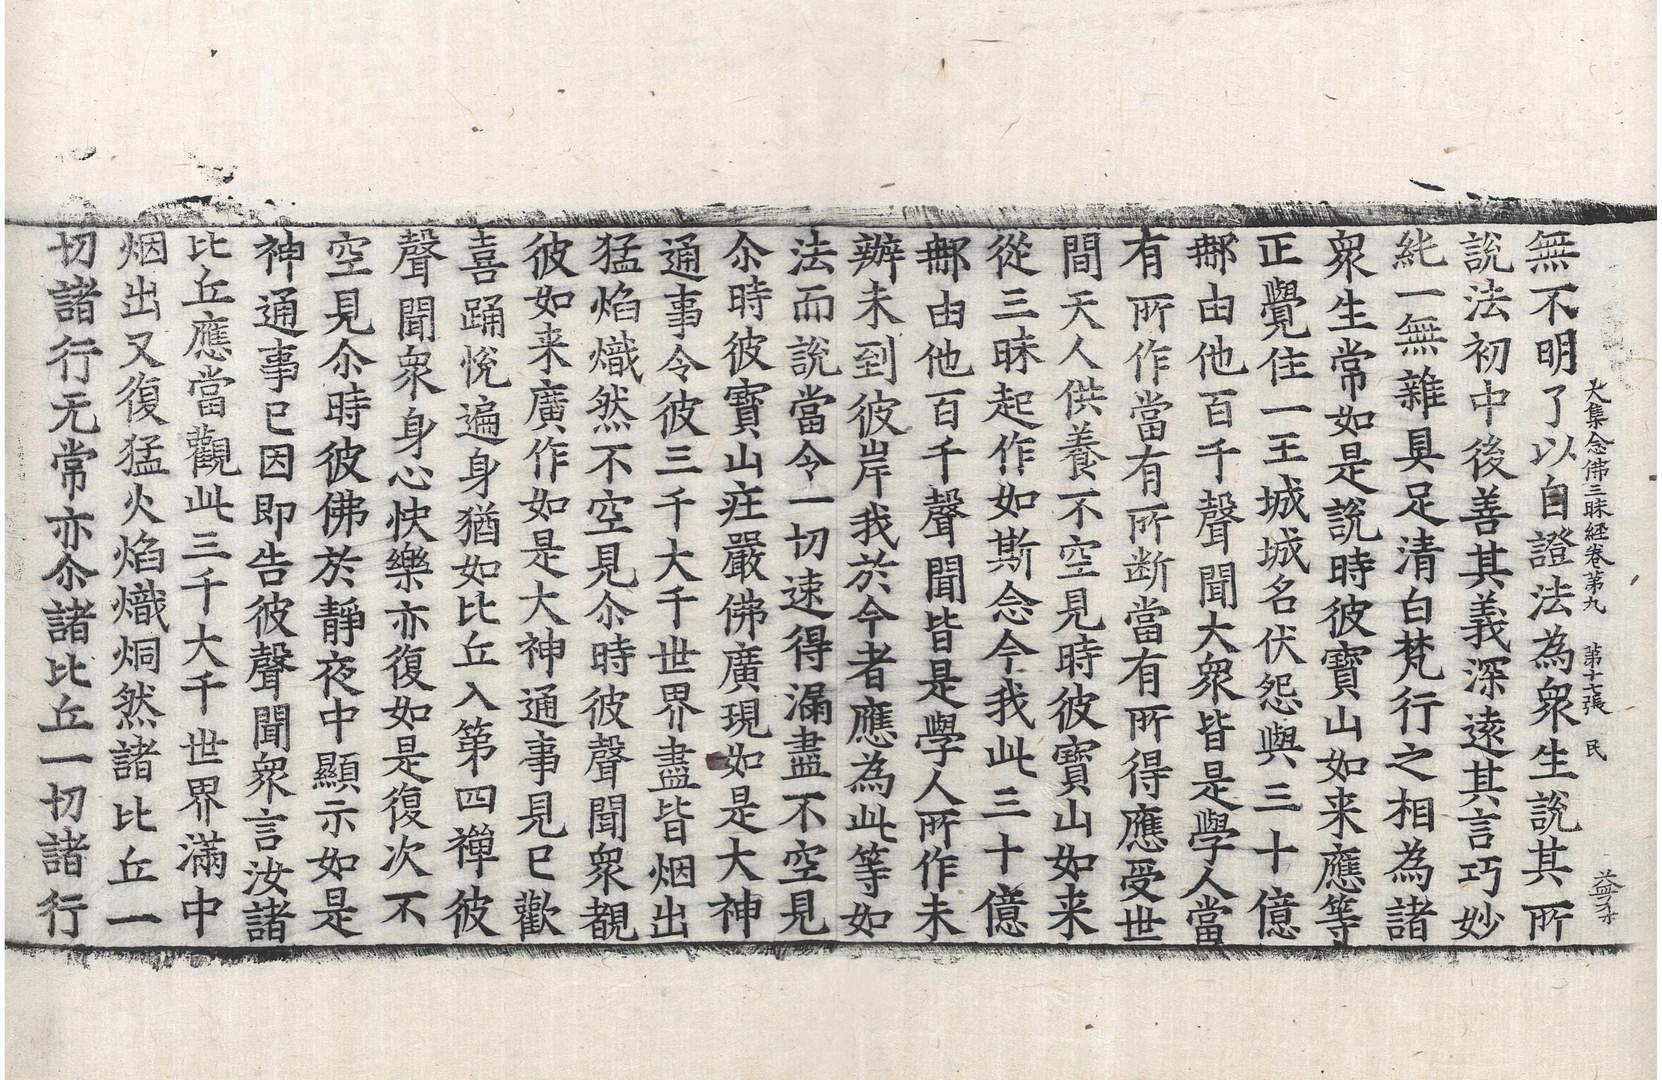 大集念佛三昧経卷第九　第十七張　民　益守
無不明了以自證法為衆生說其所
說法初中後善其義深遠其言巧妙
純一無雜具足清白梵行之相為諸
衆生常如是說時彼寶山如来應等
正覺住一王城城名伏怨與三十億
那由他百千聲聞大衆皆是學人當
有所作當有所断當有所得應受世
間天人供養不空見時彼寶山如来
從三昧起作如斯念今我此三十億
那由他百千聲聞皆是學人所作未
辦未到彼岸我於今者應為此等如
法而說當令一切速得漏盡不空見
尒時彼寶山疘嚴佛廣現如是大神
通事令彼三千大千世界盡皆烟出
猛焰熾然不空見尒時彼聲聞衆覩
彼如来廣作如是大神通事見已歡
喜踊悅遍身猶如比丘入第四禪彼
聲聞衆身心快樂亦復如是復次不
空見尒時彼佛於靜夜中顯示如是
神通事已因即告彼聲聞衆言汝諸
比丘應當觀此三千大千世界滿中
烟出又復猛火焰熾烔然諸比丘一
切諸行无常亦尒諸比丘一切諸行